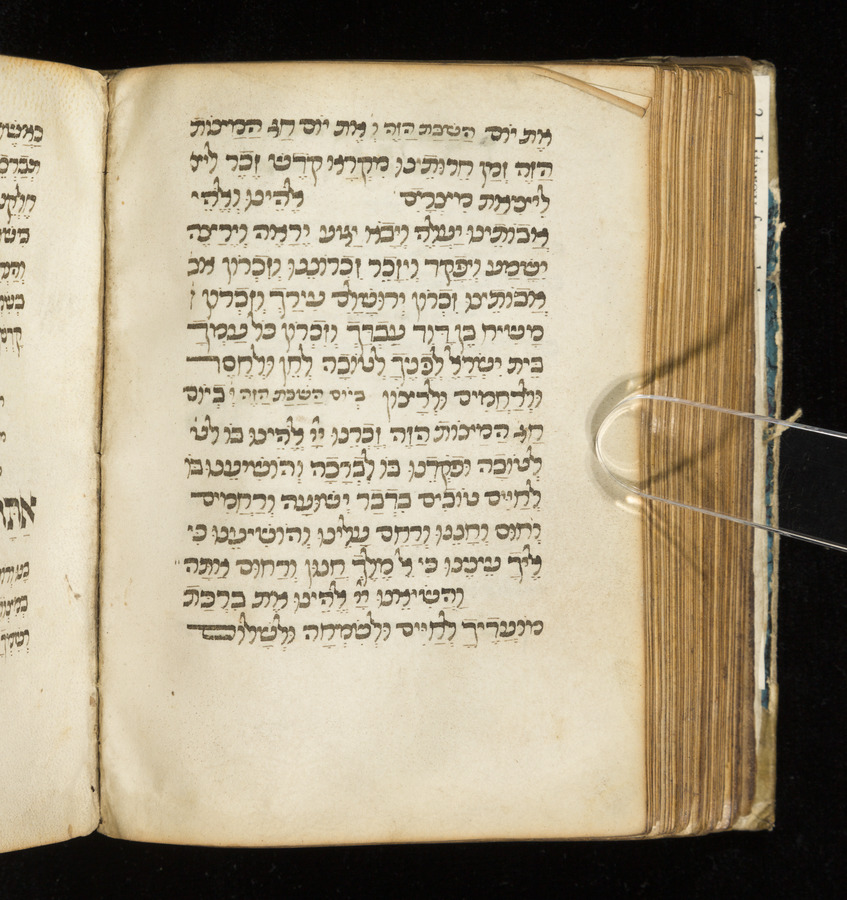 את יום השבת הזה ואת יום חג המיצות
הזה זמן חרותינו מקרא קדש זכר ליצ
ליציאת מיצרים אלהינו ואלהי
אבותינו יעלה ויבא יגיע יראה וירצה
ישמע ויפקד ויזכר זכרוננו וזכרון אב
אבותינו זכרון ירושלם עירך וזכרון
משיח בן דוד עבדך וזכרון כל עמך
בית ישראל לפניך לטובה לחן ולחסד
ולרחמים ולרצון ביום השבת הזה וביום
חג המיצות הזה זכרנו יי אלהינו בו
לטובה ופקדנו בו לברכה והושיענו בו
לחיים טובים בדבר ישועה ורחמים
וחוס וחננו ורחם עלינו והושיענו כי
אליך עינינו כי אל מלך חנון ורחום אתה
והשיאנו יי אלהינו את ברכת
מועדיך לחיים ולשמחה ולשלום